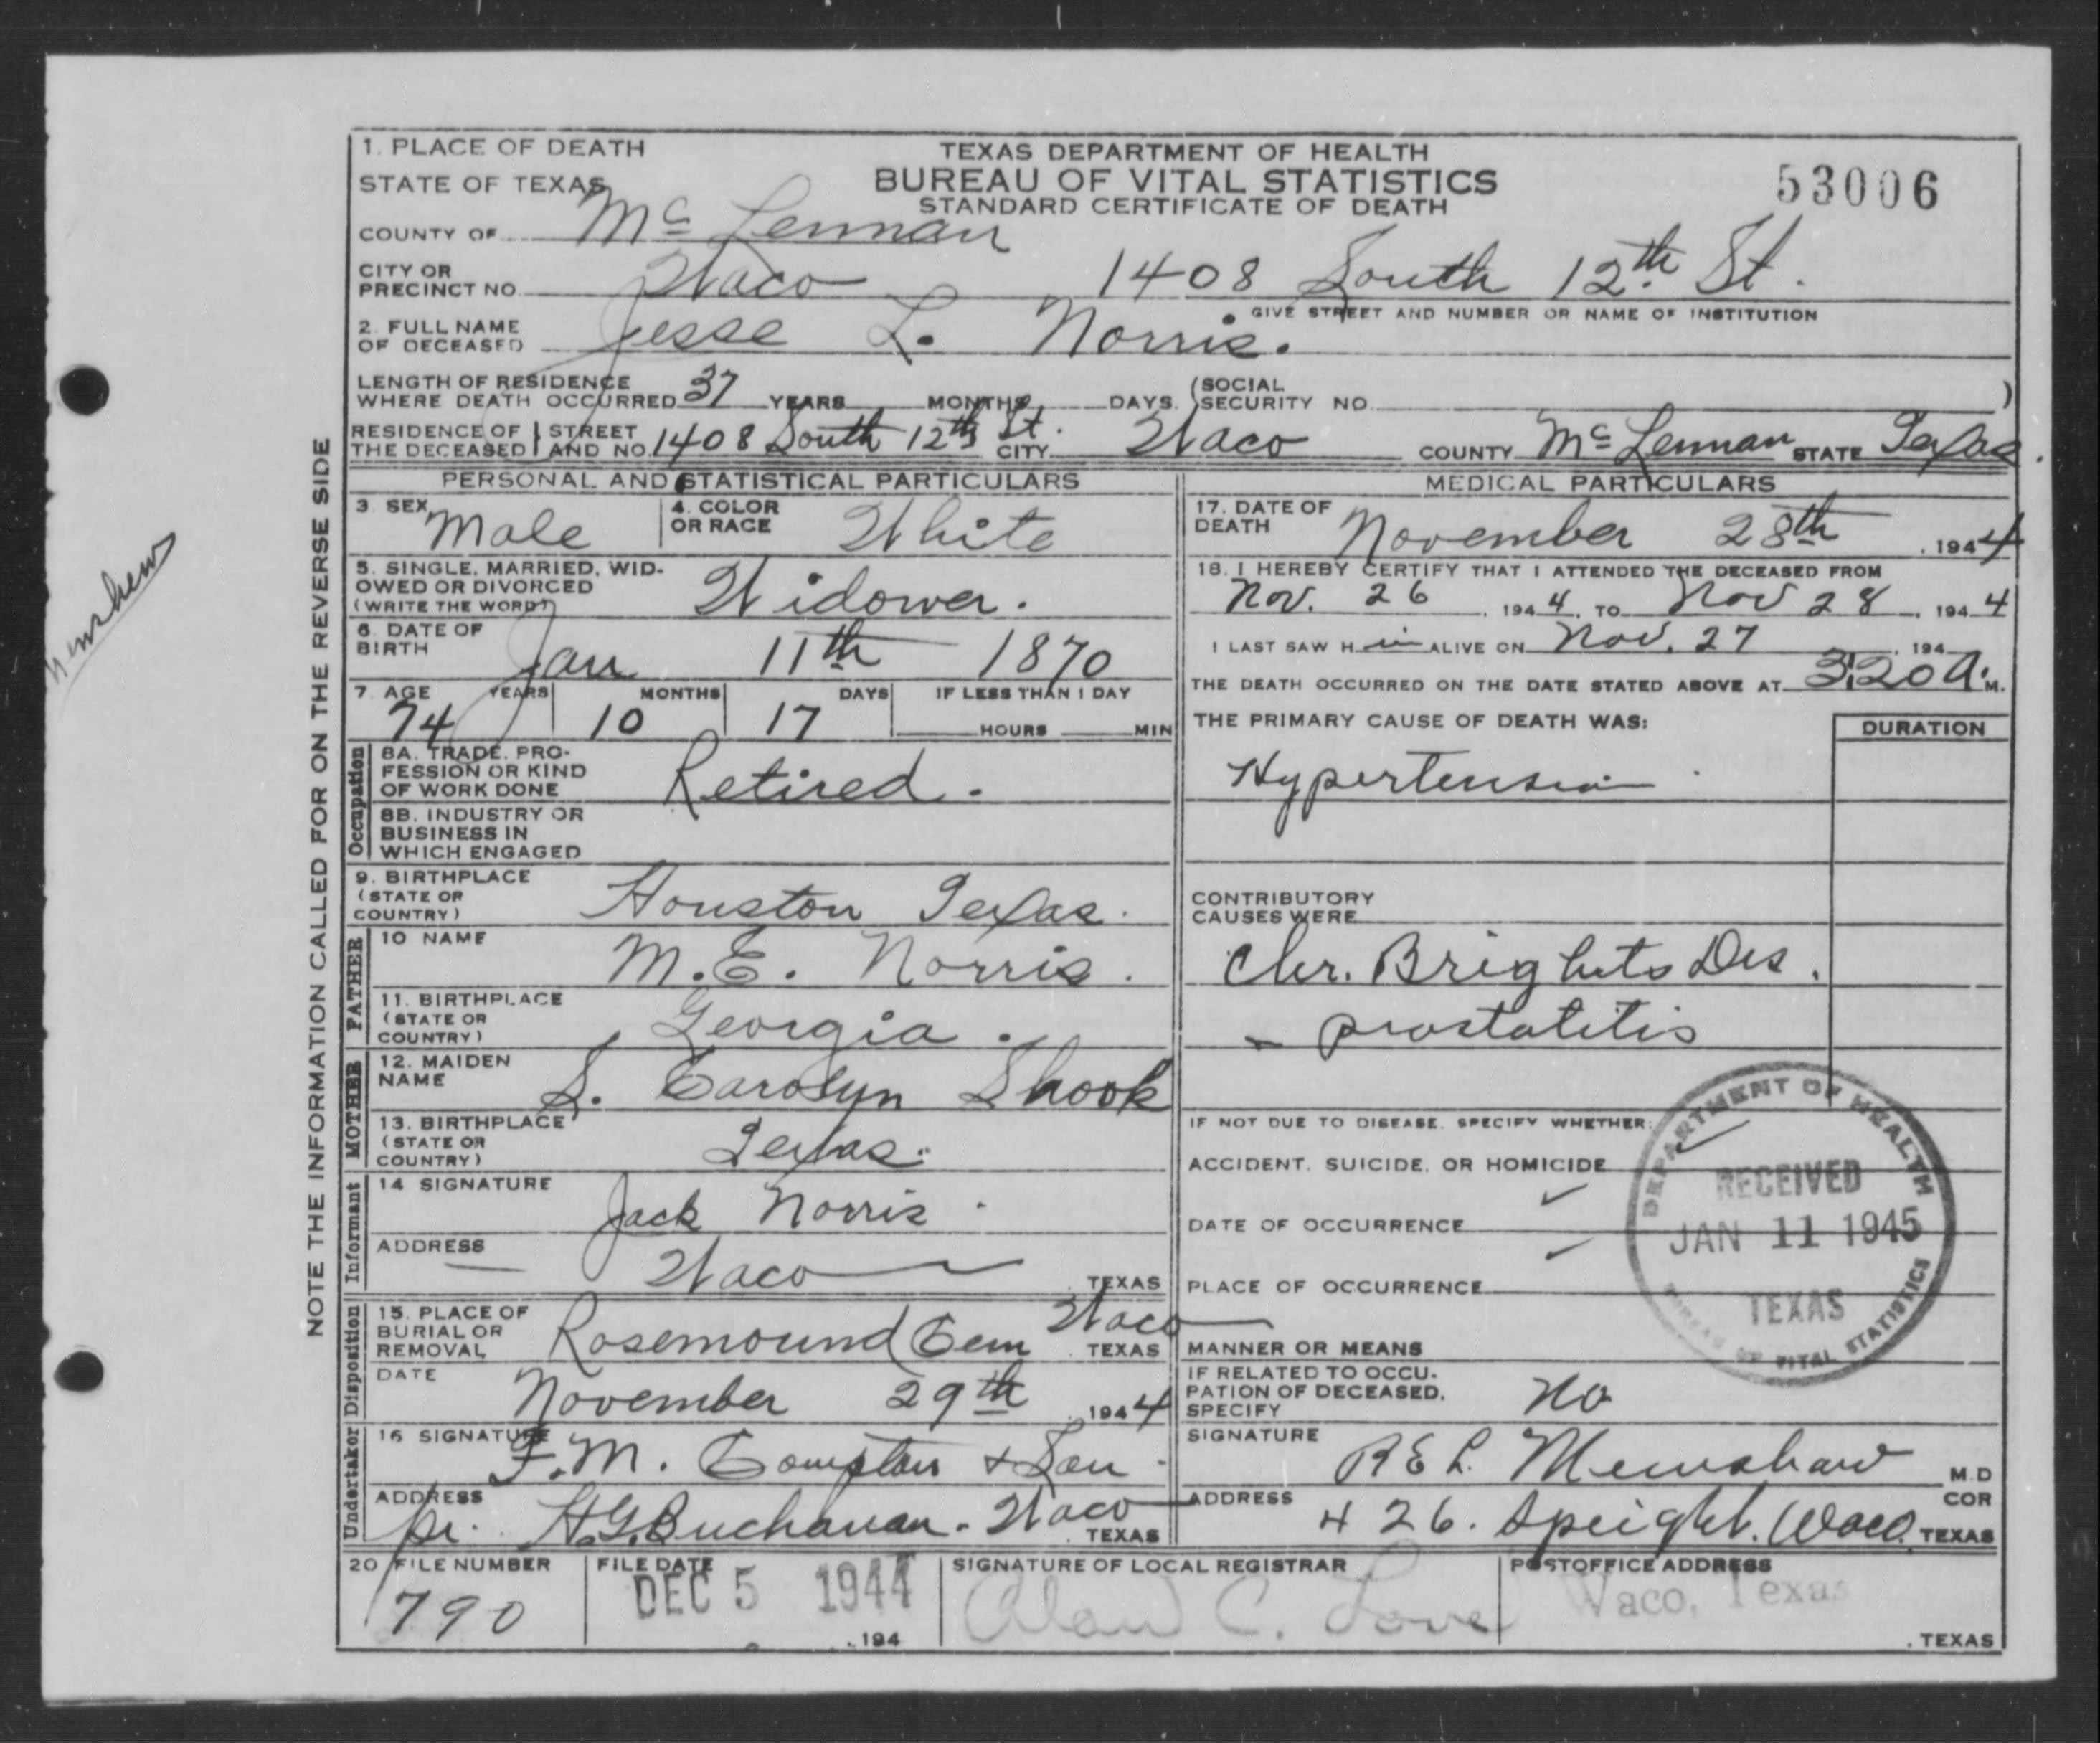 1. PLACE OF DEATH
STATE OF TEXAS
TEXAS DEPARTMENT OF HEALTH
BUREAU OF VITAL STATISTICS
STANDARD CERTIFICATE OF DEATH
53006
COUNTY OF Mc Lennan
CITY OR PRECINCT NO. Waco 1408 South 12th St.
GIVE STREET AND NUMBER OR NAME OF INSTITUTION
2. FULL NAME OF DECEASED Jesse L. Norris.
LENGTH OF RESIDENCE WHERE DEATH OCCURRED 37 YEARS MONTHS DAYS. (SOCIAL SECURITY NO. )
RESIDENCE OF THE DECEASED STREET AND NO. 1408 South 12th St. CITY Waco COUNTY Mc Lennan STATE Texas.
PERSONAL AND STATISTICAL PARTICULARS
3. SEX Male 4. COLOR OR RACE White
5. SINGLE, MARRIED, WIDOWED OR DIVORCED (WRITE THE WORD) Widower.
6. DATE OF BIRTH Jan 11th 1870
7. AGE YEARS MONTHS DAYS IF LESS THAN 1 DAY
74 10 17 HOURS MIN
Occupation
8A. TRADE, PROFESSION OR KIND OF WORK DONE Retired.
8B. INDUSTRY OR BUSINESS IN WHICH ENGAGED
9. BIRTHPLACE (STATE OR COUNTRY) Houston Texas.
FATHER
10 NAME M.E. Norris.
11. BIRTHPLACE (STATE OR COUNTRY) Georgia.
MOTHER
12. MAIDEN NAME S. Carolyn Shook
13. BIRTHPLACE (STATE OR COUNTRY) Texas.
Informant
14 SIGNATURE Jack Norris.
ADDRESS Waco TEXAS
Disposition
15. PLACE OF BURIAL OR REMOVAL Rosemound Cem Waco TEXAS
DATE November 29th 1944
Undertaker
16 SIGNATURE F.M. Compton & Son.
ADDRESS pr. H.G. Buchanan. Waco TEXAS
MEDICAL PARTICULARS
17. DATE OF DEATH November 28th, 1944
18. I HEREBY CERTIFY THAT I ATTENDED THE DECEASED FROM
Nov. 26, 1944, TO Nov 28, 1944
I LAST SAW Him ALIVE ON Nov. 27, 194
THE DEATH OCCURRED ON THE DATE STATED ABOVE AT 3:20 A.M.
THE PRIMARY CAUSE OF DEATH WAS: DURATION
Hypertension
CONTRIBUTORY CAUSES WERE
Chr. Brights Dis.
prostatitis
IF NOT DUE TO DISEASE, SPECIFY WHETHER:
ACCIDENT, SUICIDE, OR HOMICIDE
DATE OF OCCURRENCE
PLACE OF OCCURRENCE
MANNER OR MEANS
IF RELATED TO OCCUPATION OF DECEASED, SPECIFY No
SIGNATURE R E L. Menshaw M.D
COR
ADDRESS 426. Speight. Waco. TEXAS
DEPARTMENT OF HEALTH
RECEIVED
JAN 11 1945
TEXAS
BUREAU OF VITAL STATISTICS
20 FILE NUMBER 790
FILE DATE DEC 5 1944, 194
SIGNATURE OF LOCAL REGISTRAR Alan C. Love
POSTOFFICE ADDRESS Waco, Texas
, TEXAS
NOTE THE INFORMATION CALLED FOR ON THE REVERSE SIDE